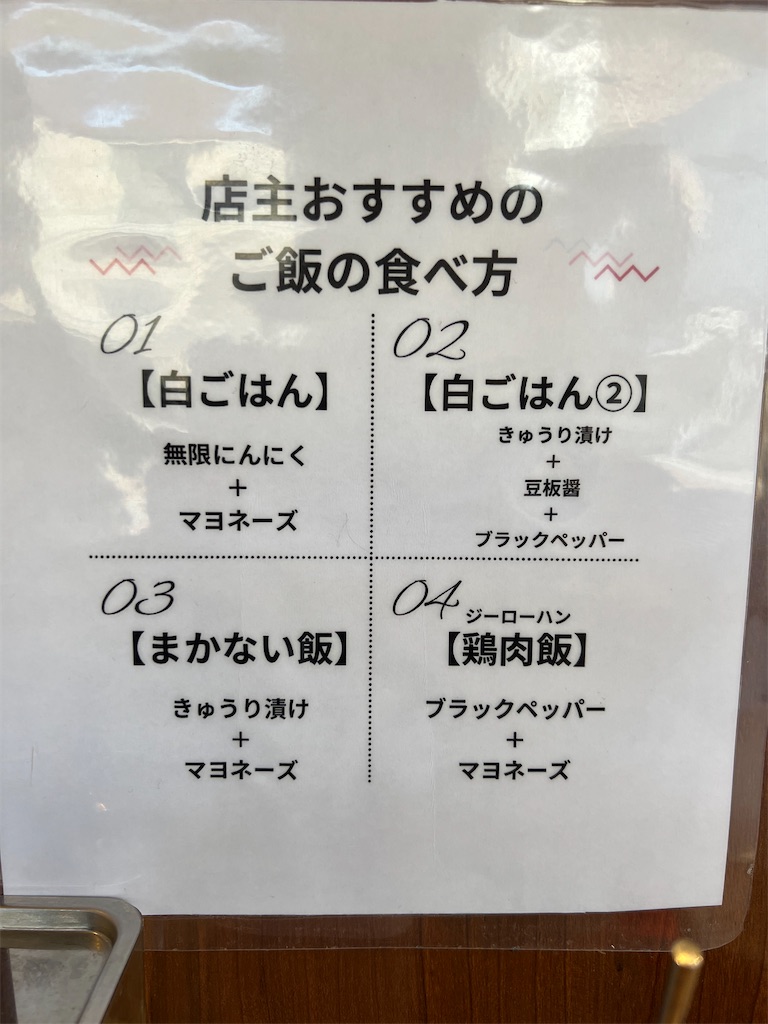 店主おすすめの
ご飯の食べ方
01
【白ごはん】
無限にんにく
+
マヨネーズ
02
【白ごはん②】
きゅうり漬け
+
豆板醤
+
ブラックペッパー
03
【まかない飯】
きゅうり漬け
+
マヨネーズ
04
ジーローハン
【鶏肉飯】
ブラックペッパー
+
マヨネーズ